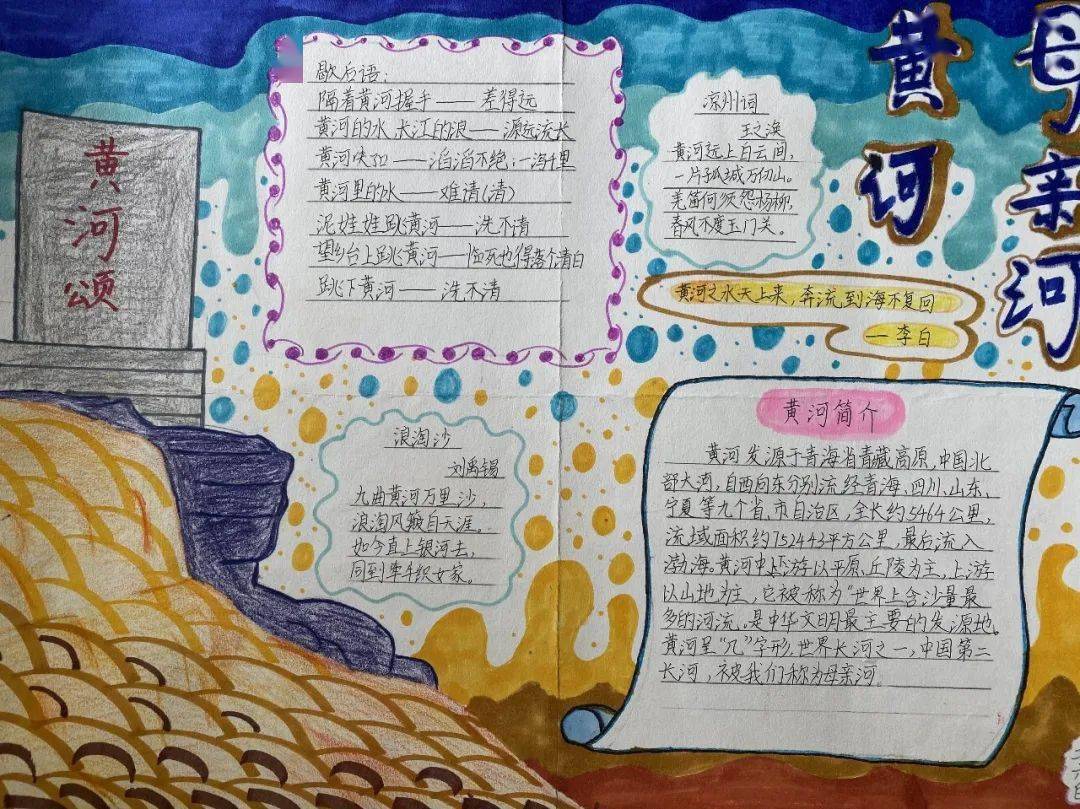 黄河
母亲河
黄河颂
歇后语：
隔着黄河握手——差得远
黄河的水,长江的浪——源远流长
黄河决口——滔滔不绝；一泻千里
黄河里的水——难请(清)
泥娃娃跳黄河——洗不清
望乡台上跳黄河——临死也得落个清白
跳下黄河——洗不清
凉州词
王之涣
黄河远上白云间,
一片孤城万仞山。
羌笛何须怨杨柳,
春风不度玉门关。
黄河之水天上来,奔流到海不复回
—李白
浪淘沙
刘禹锡
九曲黄河万里沙,
浪淘风簸自天涯。
如今直上银河去,
同到牵牛织女家。
黄河简介
黄河发源于青海省青藏高原,中国北
部大河,自西向东分别流经青海、四川、山东、
宁夏等九个省、市自治区,全长约5464公里,
流域面积约752443平方公里,最后流入
渤海,黄河中下游以平原、丘陵为主,上游
以山地为主,它被称为"世界上含沙量最
多的河流,是中华文明最主要的发源地。
黄河呈"几"字形,世界长河之一,中国第二
长河,被我们称为母亲河。